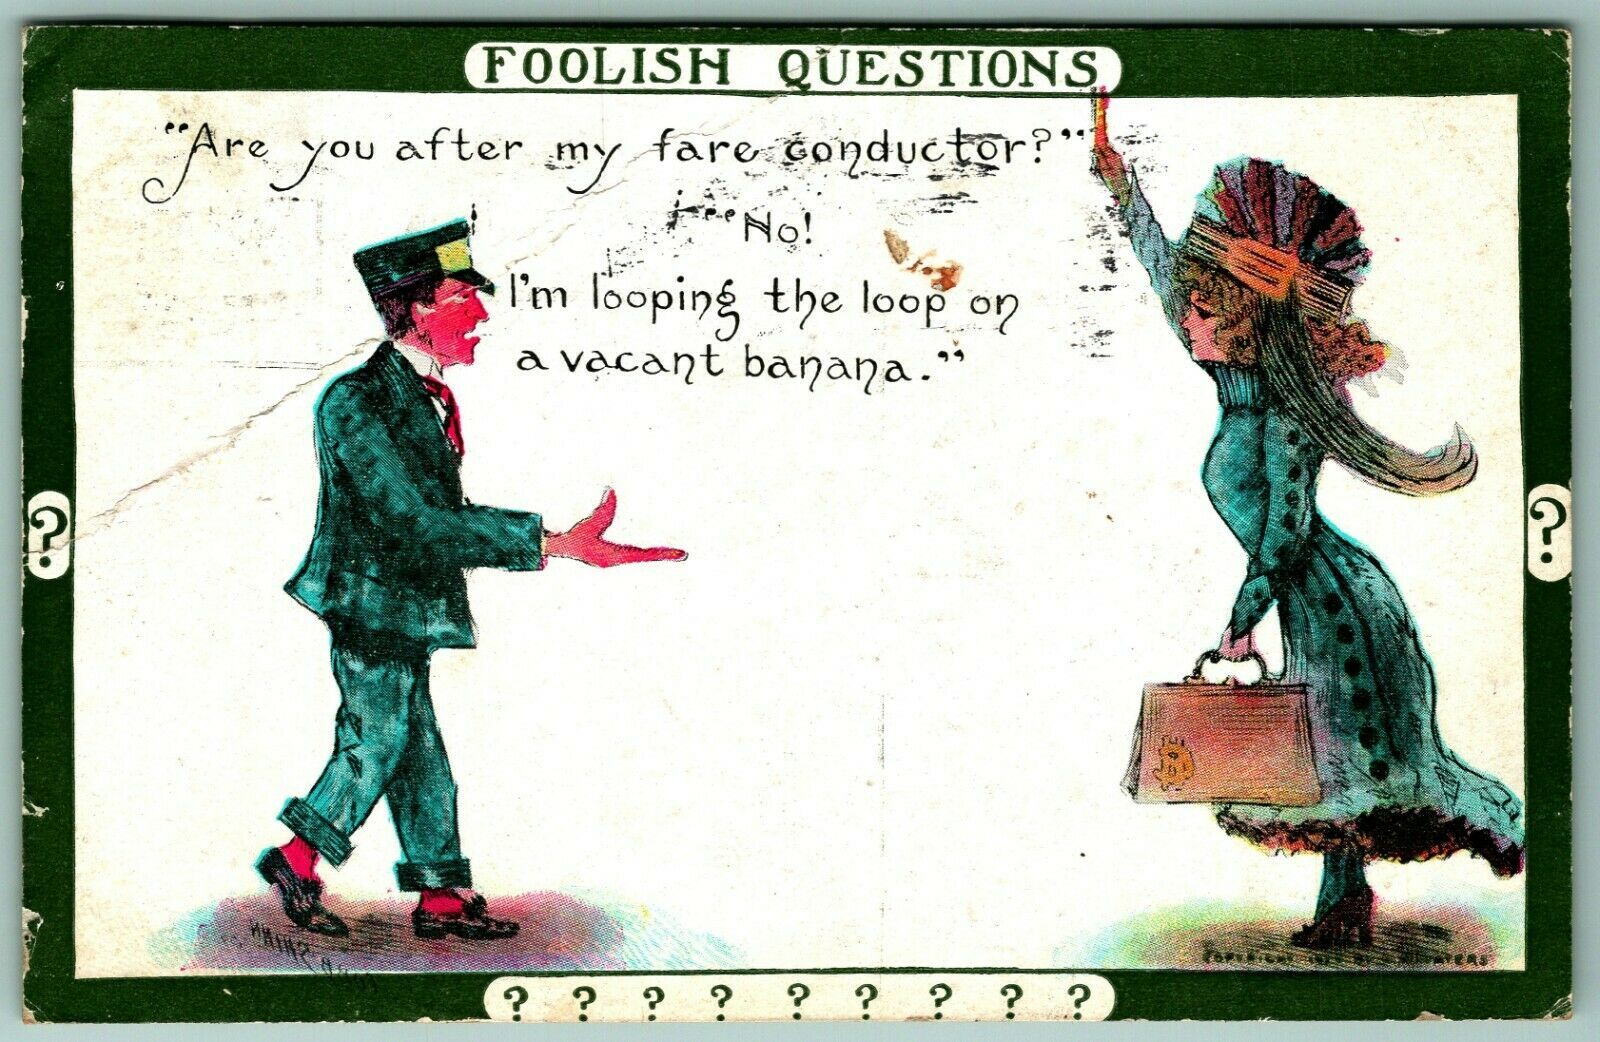 FOOLISH QUESTIONS
"Are you after my fare conductor?"
"No!
I'm looping the loop on
a vacant banana."
?
?
? ? ? ? ? ? ? ? ?
COPYRIGHT